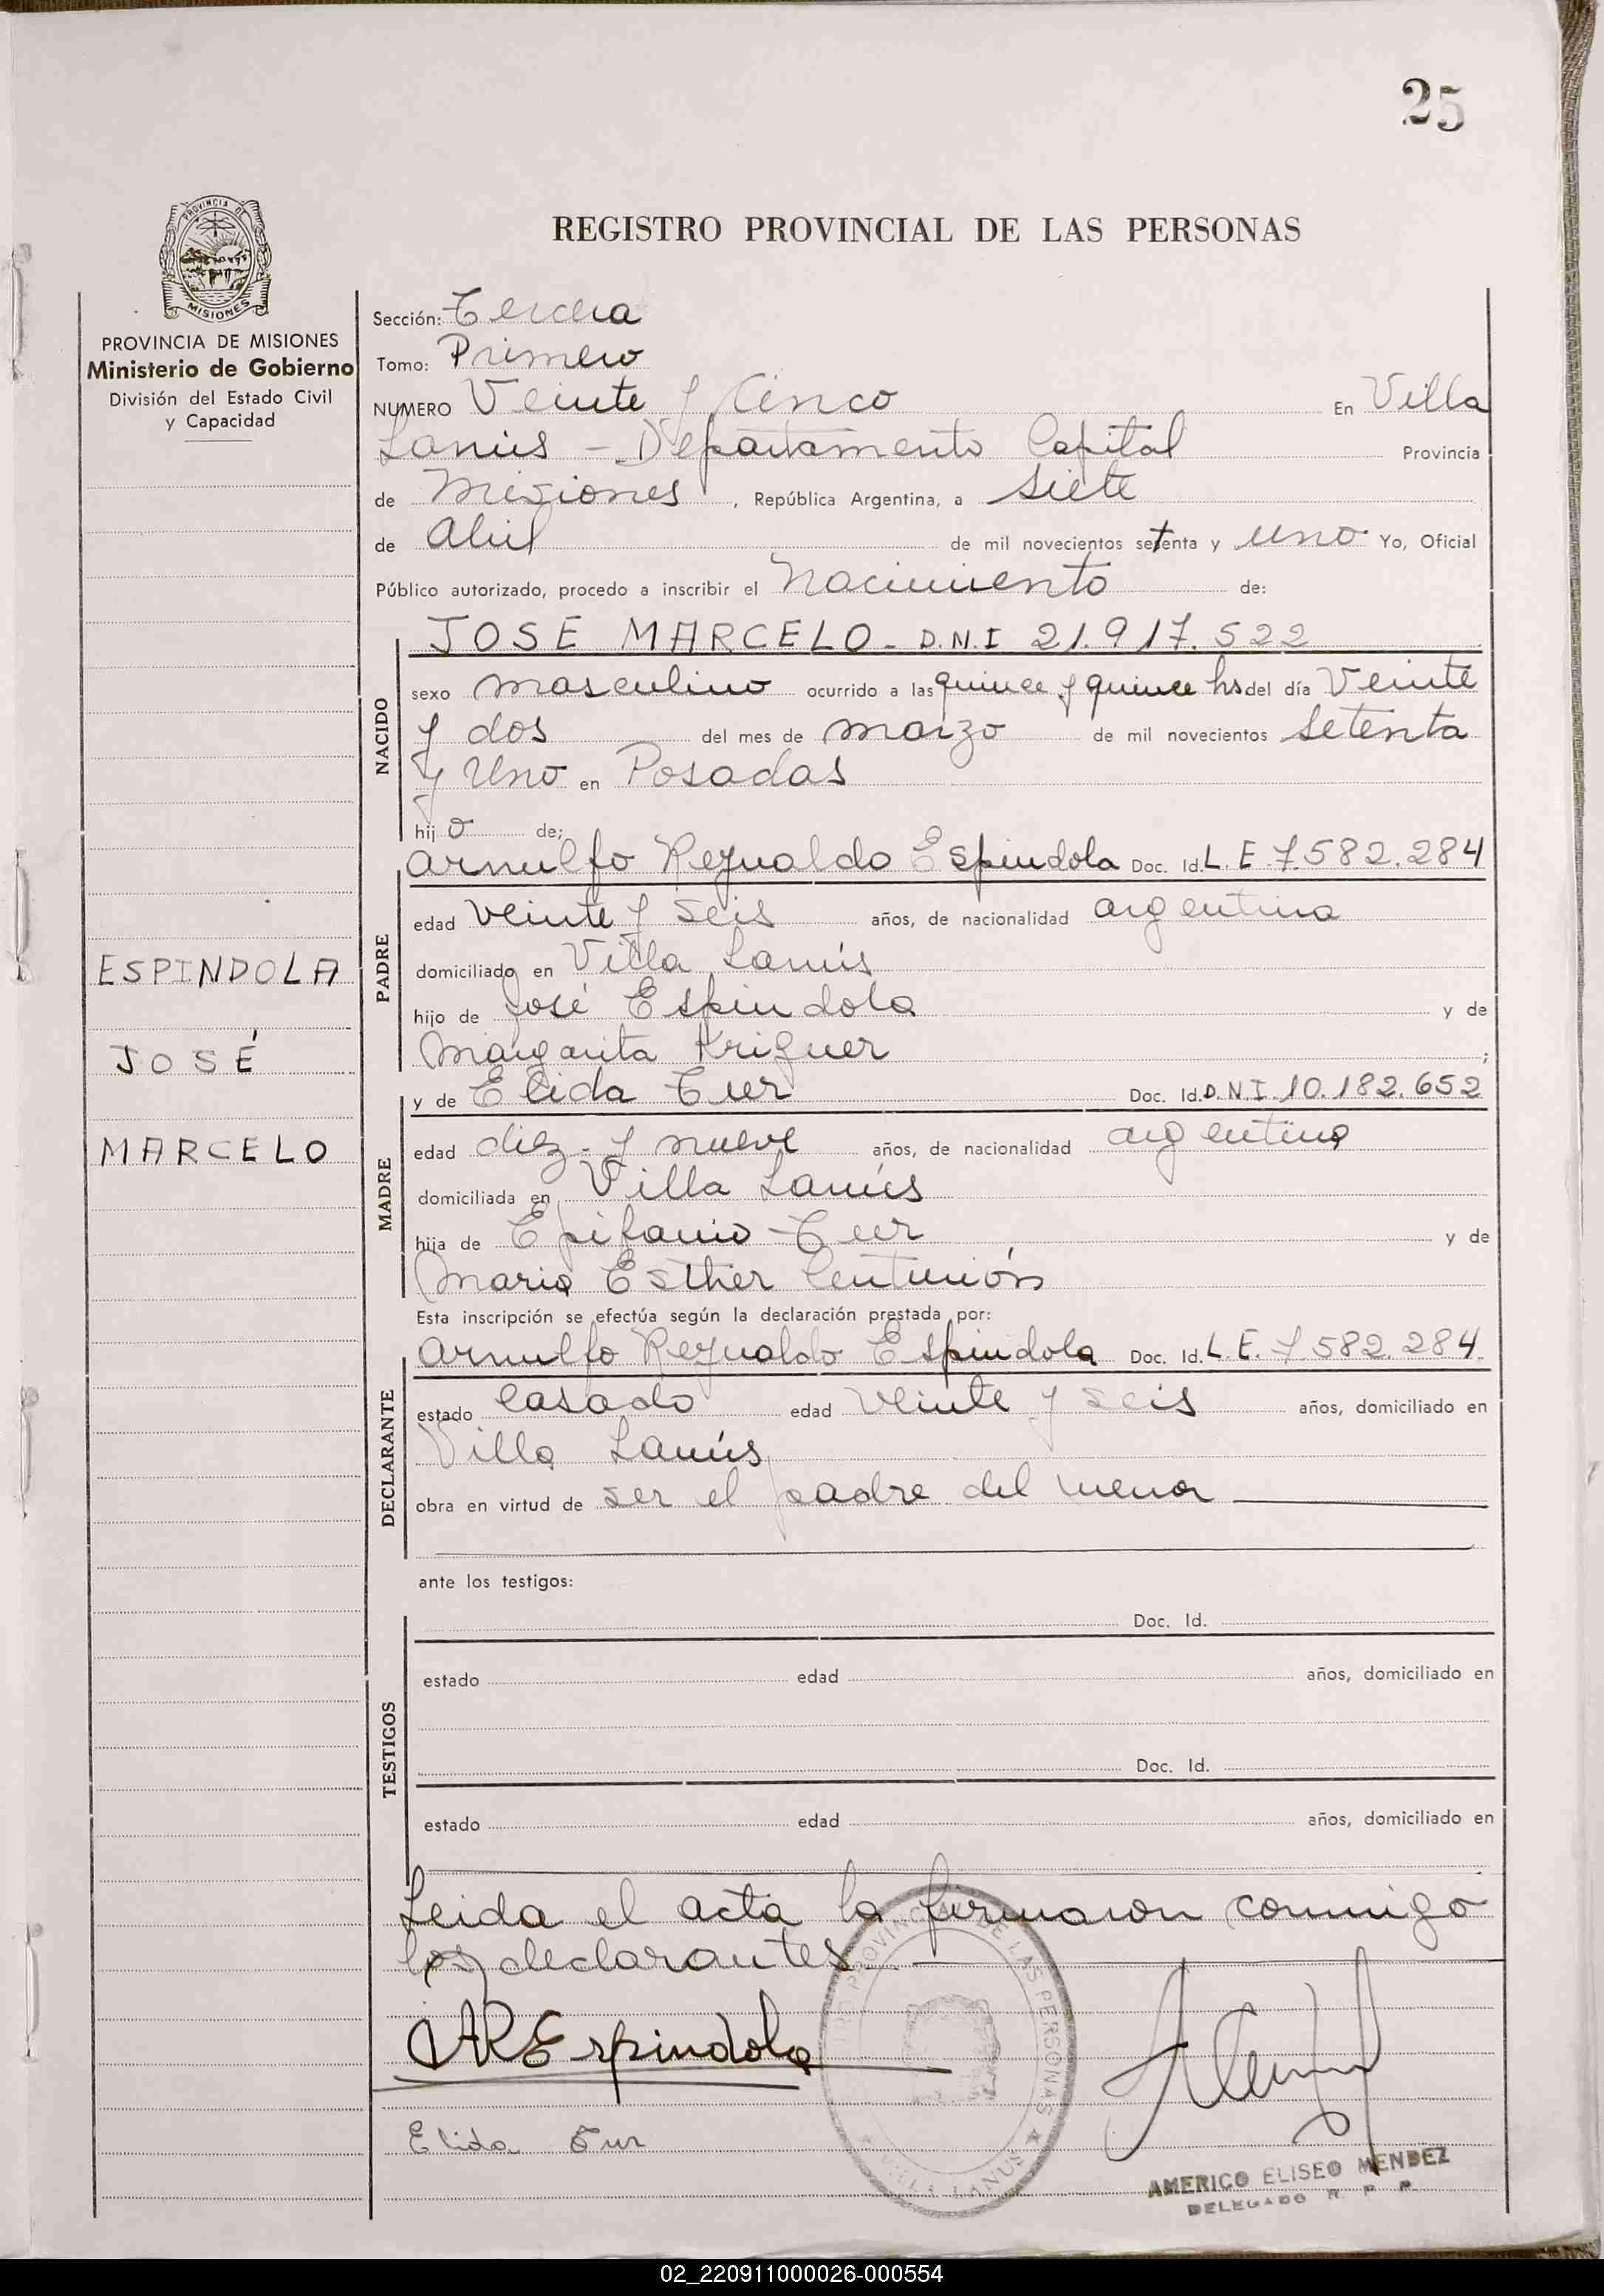 25
REGISTRO PROVINCIAL DE LAS PERSONAS
PROVINCIA DE
MISIONES
PROVINCIA DE MISIONES
Ministerio de Gobierno
División del Estado Civil
y Capacidad
ESPINDOLA
JOSÉ
MARCELO
Sección: Tercera
Tomo: Primero
NUMERO Veinte y Cinco En Villa
Lanús - Departamento Capital Provincia
de Misiones, República Argentina, a siete
de Abril de mil novecientos setenta y uno Yo, Oficial
Público autorizado, procedo a inscribir el Nacimiento de:
JOSE MARCELO - D.N.I 21.917.522
NACIDO
sexo masculino ocurrido a las quince y quince hs del día Veinte
y dos del mes de marzo de mil novecientos setenta
y Uno en Posadas
hijo de;
Arnulfo Reynaldo Espindola Doc. Id. L.E 7.582.284
PADRE
edad veinte y seis años, de nacionalidad argentina
domiciliado en Villa Lanús
hijo de José Espindola y de
Margarita Kriguer;
y de Elida Tur Doc. Id. D.N.I. 10.182.652
MADRE
edad diez y nueve años, de nacionalidad argentina
domiciliada en Villa Lanús
hija de Epifanio Tur y de
Maria Esther Centurión
Esta inscripción se efectúa según la declaración prestada por:
Arnulfo Reynaldo Espindola Doc. Id. L.E. 7.582.284
DECLARANTE
estado casado edad veinte y seis años, domiciliado en
Villa Lanús
obra en virtud de ser el padre del menor
ante los testigos:
Doc. Id.
TESTIGOS
estado edad años, domiciliado en
Doc. Id.
estado edad años, domiciliado en
Leida el acta la firmaron conmigo
los declarantes
AREspindola
Elida Tur
PROVINCIAL DE LAS PERSONAS
VILLA LANUS
AMERICO ELISEO MENDEZ
DELEGADO R. P. P.
02_220911000026-000554